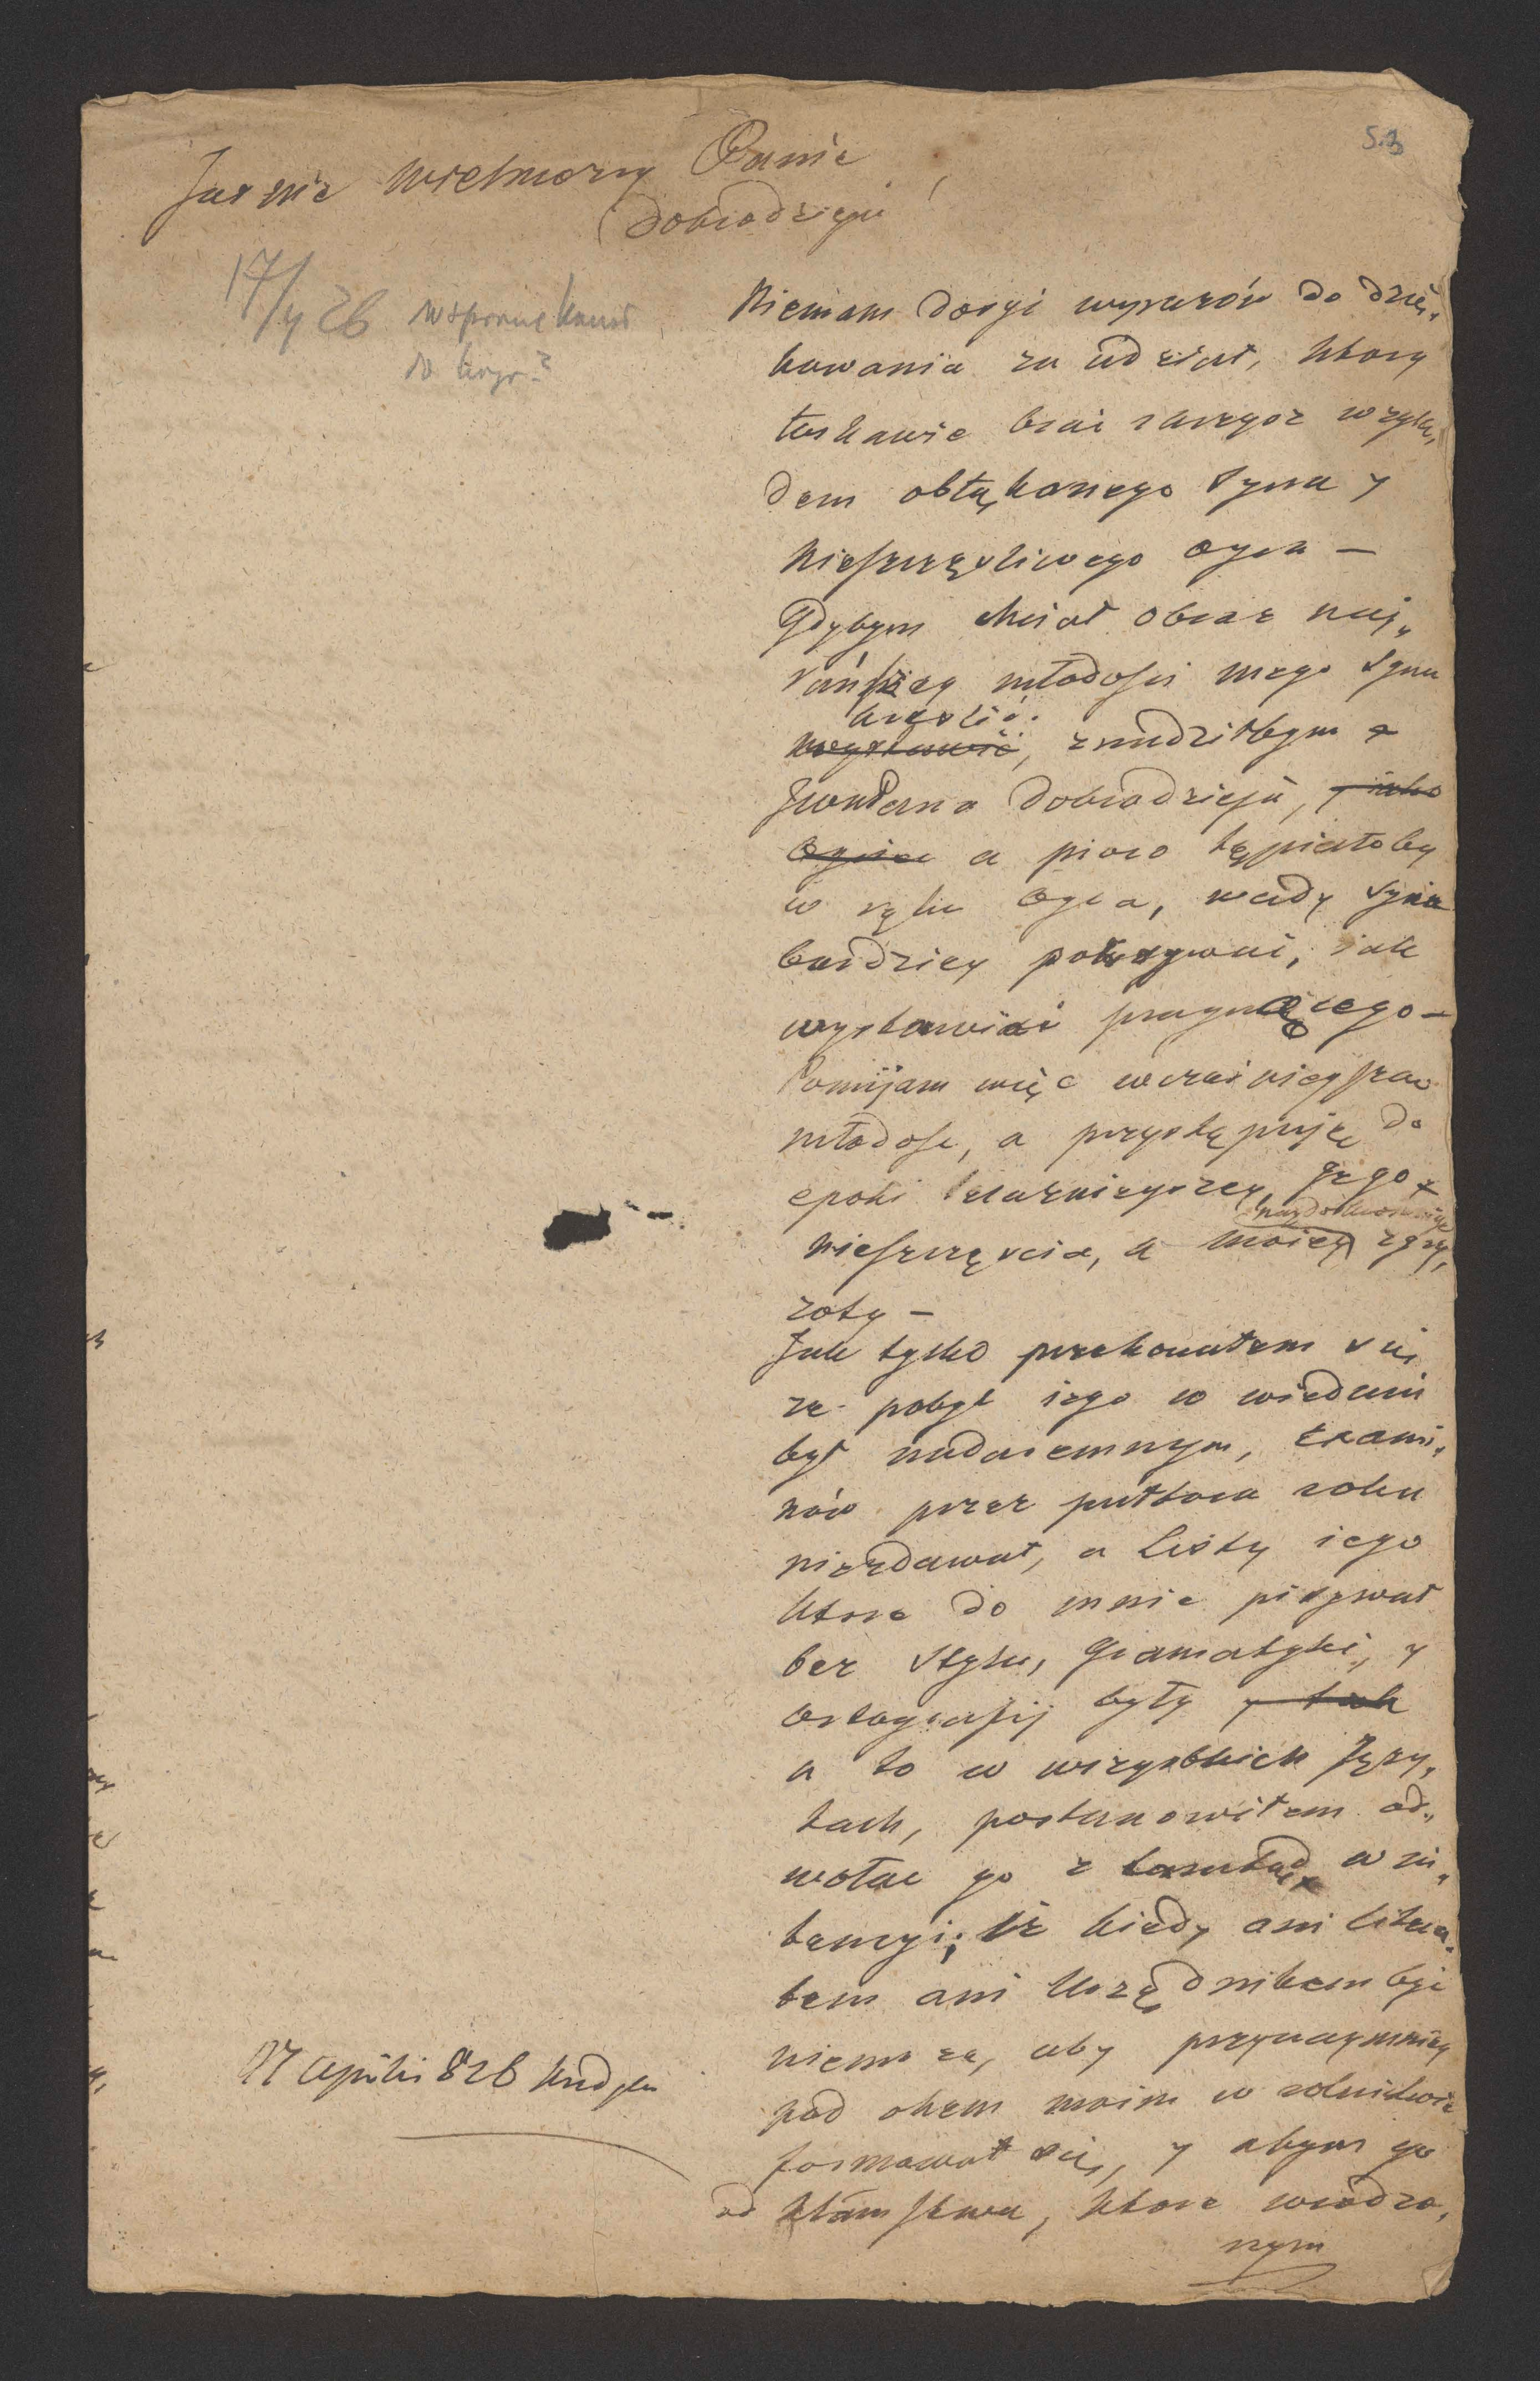 53
Jasnie Wielmożny Panie
Dobrodzieju!
17/4 26
Niemam dosyć wyrazów do dzię„
kowania za udział, ktory
łaskawie brać raczysz wzglę„
dem obłąkanego syna y
nieszczęsliwego oyca —
Gdybym chciał obraz nay„
rańszey młodosci mego syna
kreslić
wystawić, znudziłbym
JWPana Dobrodzieja, y iako
Oyciec a pioro tępiałoby
w ręku oyca, wady syna
bardziey pokrywać, iak
wystawiać pragnącego —
Pomijam więc wcześnieyszą
młodość, a przystępuję do
epoki teraźnieyszey, jego
nieszczęscia, a moiey zgry„
zoty —
Jak tylko przekonałem się
że pobyt iego w Wiedniu
był nadaremnym, Exami„
nów przez półtora roku
niezdawał, a Listy iego
ktore do mnie pisywał
bez stylu, Gramatyki, y
ortografij były y tak
a to w wszystkich Języ„
kach, postanowiłem od„
wołać go z tamtąd w in„
tencyi; że kiedy ani Litera„
tem ani Urzędnikem być
niemoże, aby przynaymniey
pod okem moim w rolnictwie
formował się, y abym go
od kłamstwa, ktore wrodzo„
nym
17 Aprilis 826